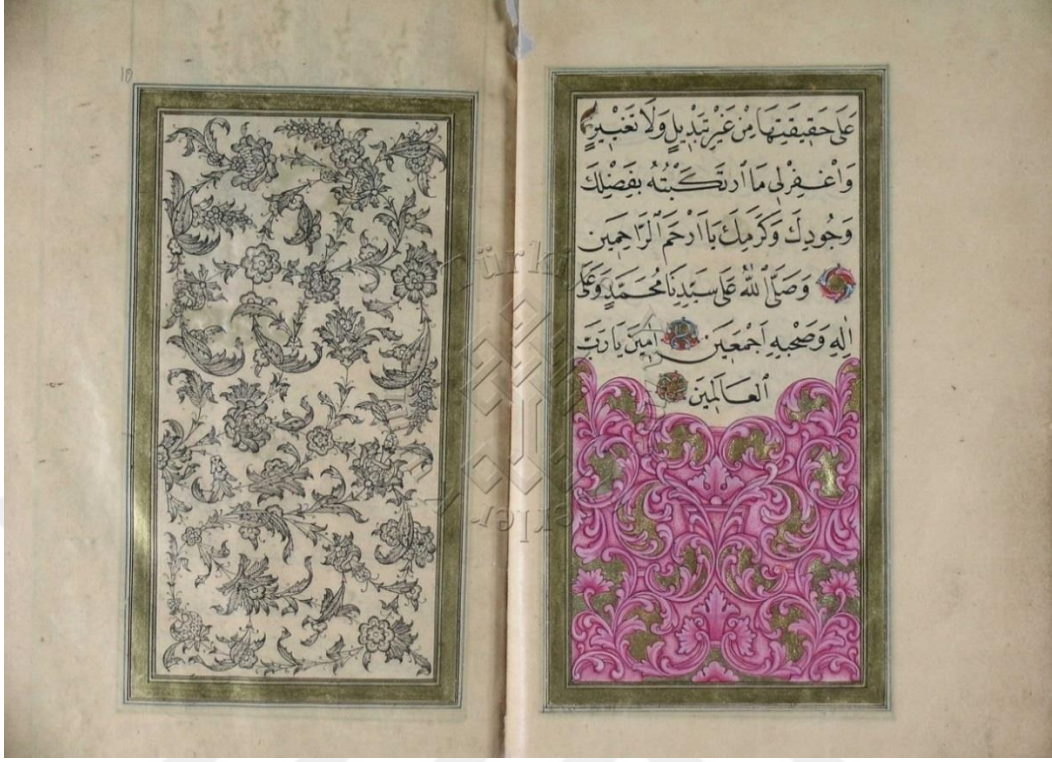 عَلَى حَقِيقَتِهَا مِنْ غَيْرِ تَبْدِيلٍ وَلَا تَغْيِيرٍ
وَاغْفِرْلِي مَا ٱرْتَكَبْتُهُ بِفَضْلِكَ
وَجُودِكَ وَكَرَمِكَ يَا اَرْحَمَ ٱلرَّاحِمِينَ
وَصَلَّى ٱللّٰهُ عَلَى سَيِّدِنَا مُحَمَّدٍ وَعَلَى
اٰلِهِ وَصَحْبِهِ اَجْمَعِينَ اٰمِينَ يَارَبَّ
ٱلْعَالَمِينَ
10